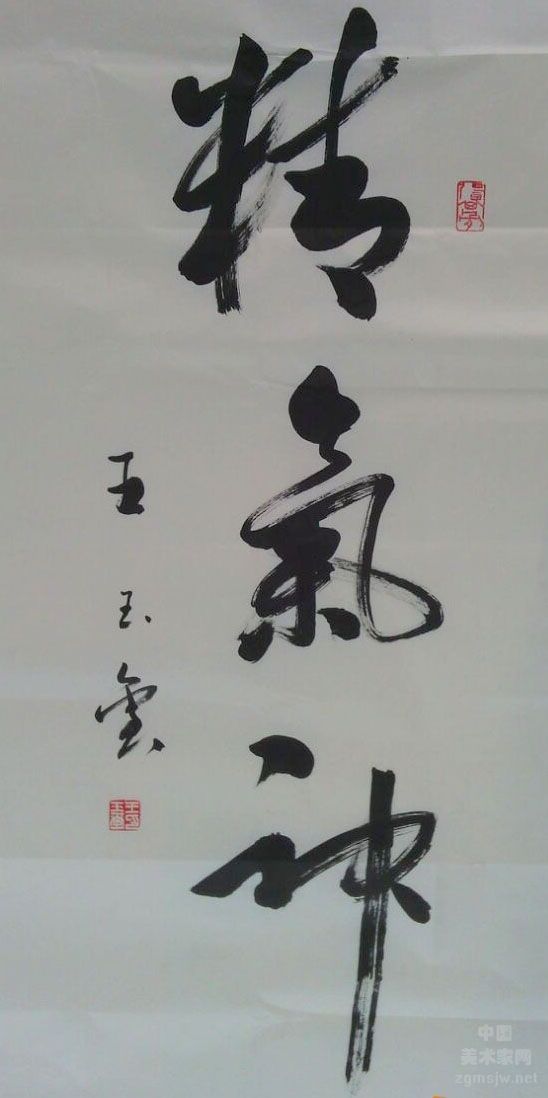 精氣神
王玉
中国
美术家网
zgmsjw.net